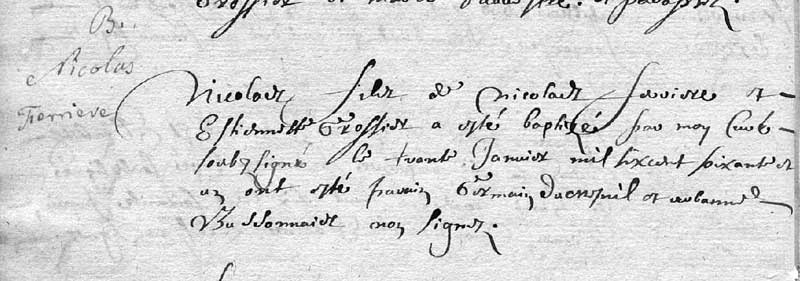 B.
Nicolas
Ferriere
Nicolas filz de Nicolas ferriere et
Estiennette Grossier a esté baptizé par moy Curé
soubzsigné le trante Janvier mil six cent soixante et
un ont esté parain Germain et
Bussonnaier non signez.